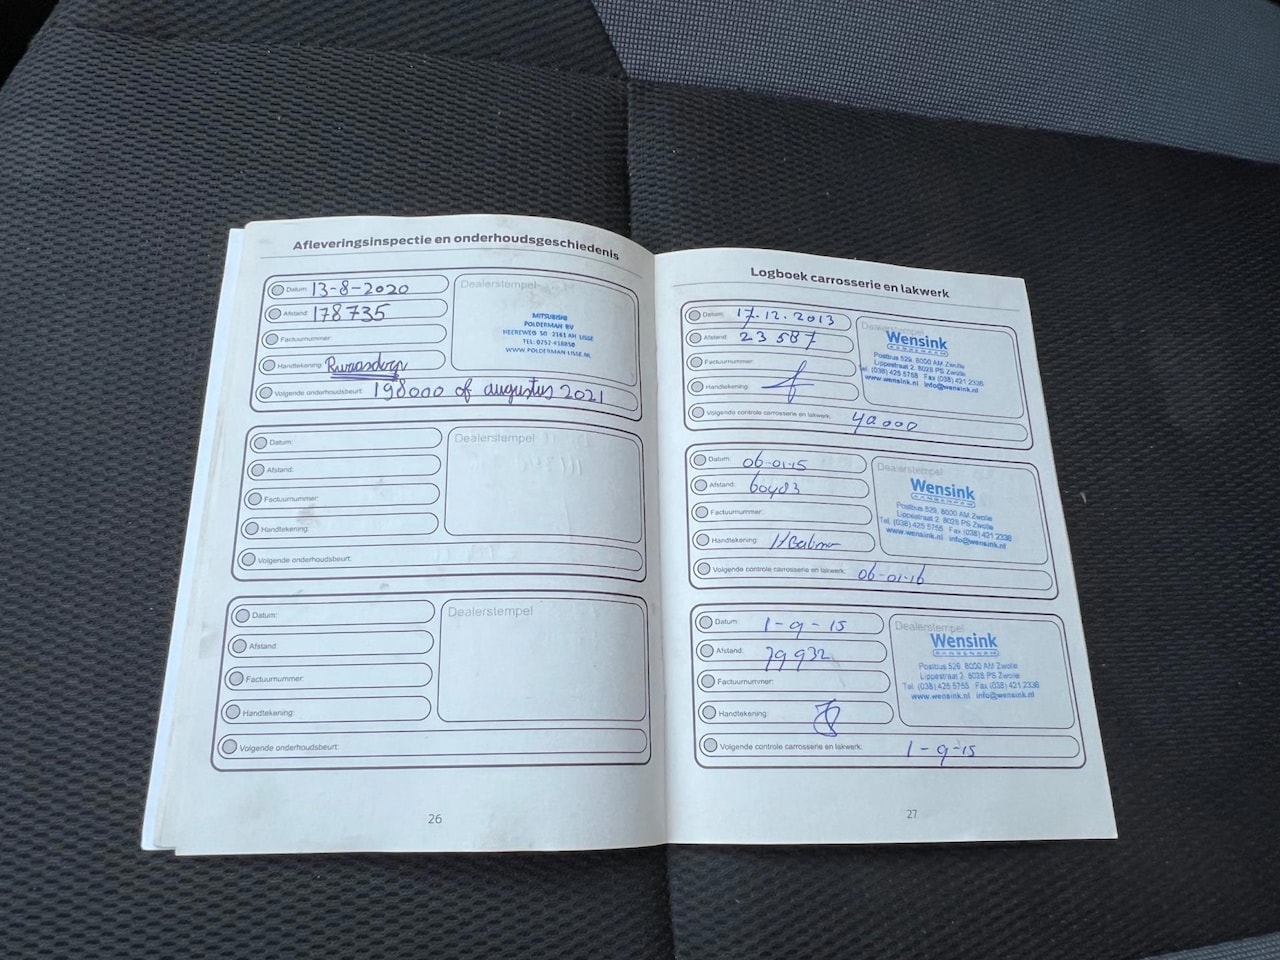 Afleveringsinspectie en onderhoudsgeschiedenis
Datum: 13-8-2020
Afstand: 178735
Factuurnummer:
Handtekening:
Volgende onderhoudsbeurt: 198000 of augustus 2021
Dealerstempel
MITSUBISHI
POLDERMAN BV
HEEREWEG 50 2161 AH LISSE
TEL: 0252-418850
WWW.POLDERMAN-LISSE.NL
Datum:
Afstand:
Factuurnummer:
Handtekening:
Volgende onderhoudsbeurt:
Dealerstempel
Datum:
Afstand:
Factuurnummer:
Handtekening:
Volgende onderhoudsbeurt:
Dealerstempel
26
Logboek carrosserie en lakwerk
Datum: 17.12.2013
Afstand: 23587
Factuurnummer:
Handtekening:
Volgende controle carrosserie en lakwerk: 40000
Dealerstempel
Wensink
Postbus 529, 8000 AM Zwolle
Lippestraat 2, 8028 PS Zwolle
Tel. (038) 425 5758 Fax (038) 421 2336
www.wensink.nl info@wensink.nl
Datum: 06-01-15
Afstand: 60483
Factuurnummer:
Handtekening:
Volgende controle carrosserie en lakwerk: 06-01-16
Dealerstempel
Wensink
Postbus 529, 8000 AM Zwolle
Lippestraat 2, 8028 PS Zwolle
Tel. (038) 425 5758 Fax (038) 421 2336
www.wensink.nl info@wensink.nl
Datum: 1-9-15
Afstand: 79932
Factuurnummer:
Handtekening:
Volgende controle carrosserie en lakwerk: 1-9-15
Dealerstempel
Wensink
Postbus 529, 8000 AM Zwolle
Lippestraat 2, 8028 PS Zwolle
Tel. (038) 425 5758 Fax (038) 421 2336
www.wensink.nl info@wensink.nl
27